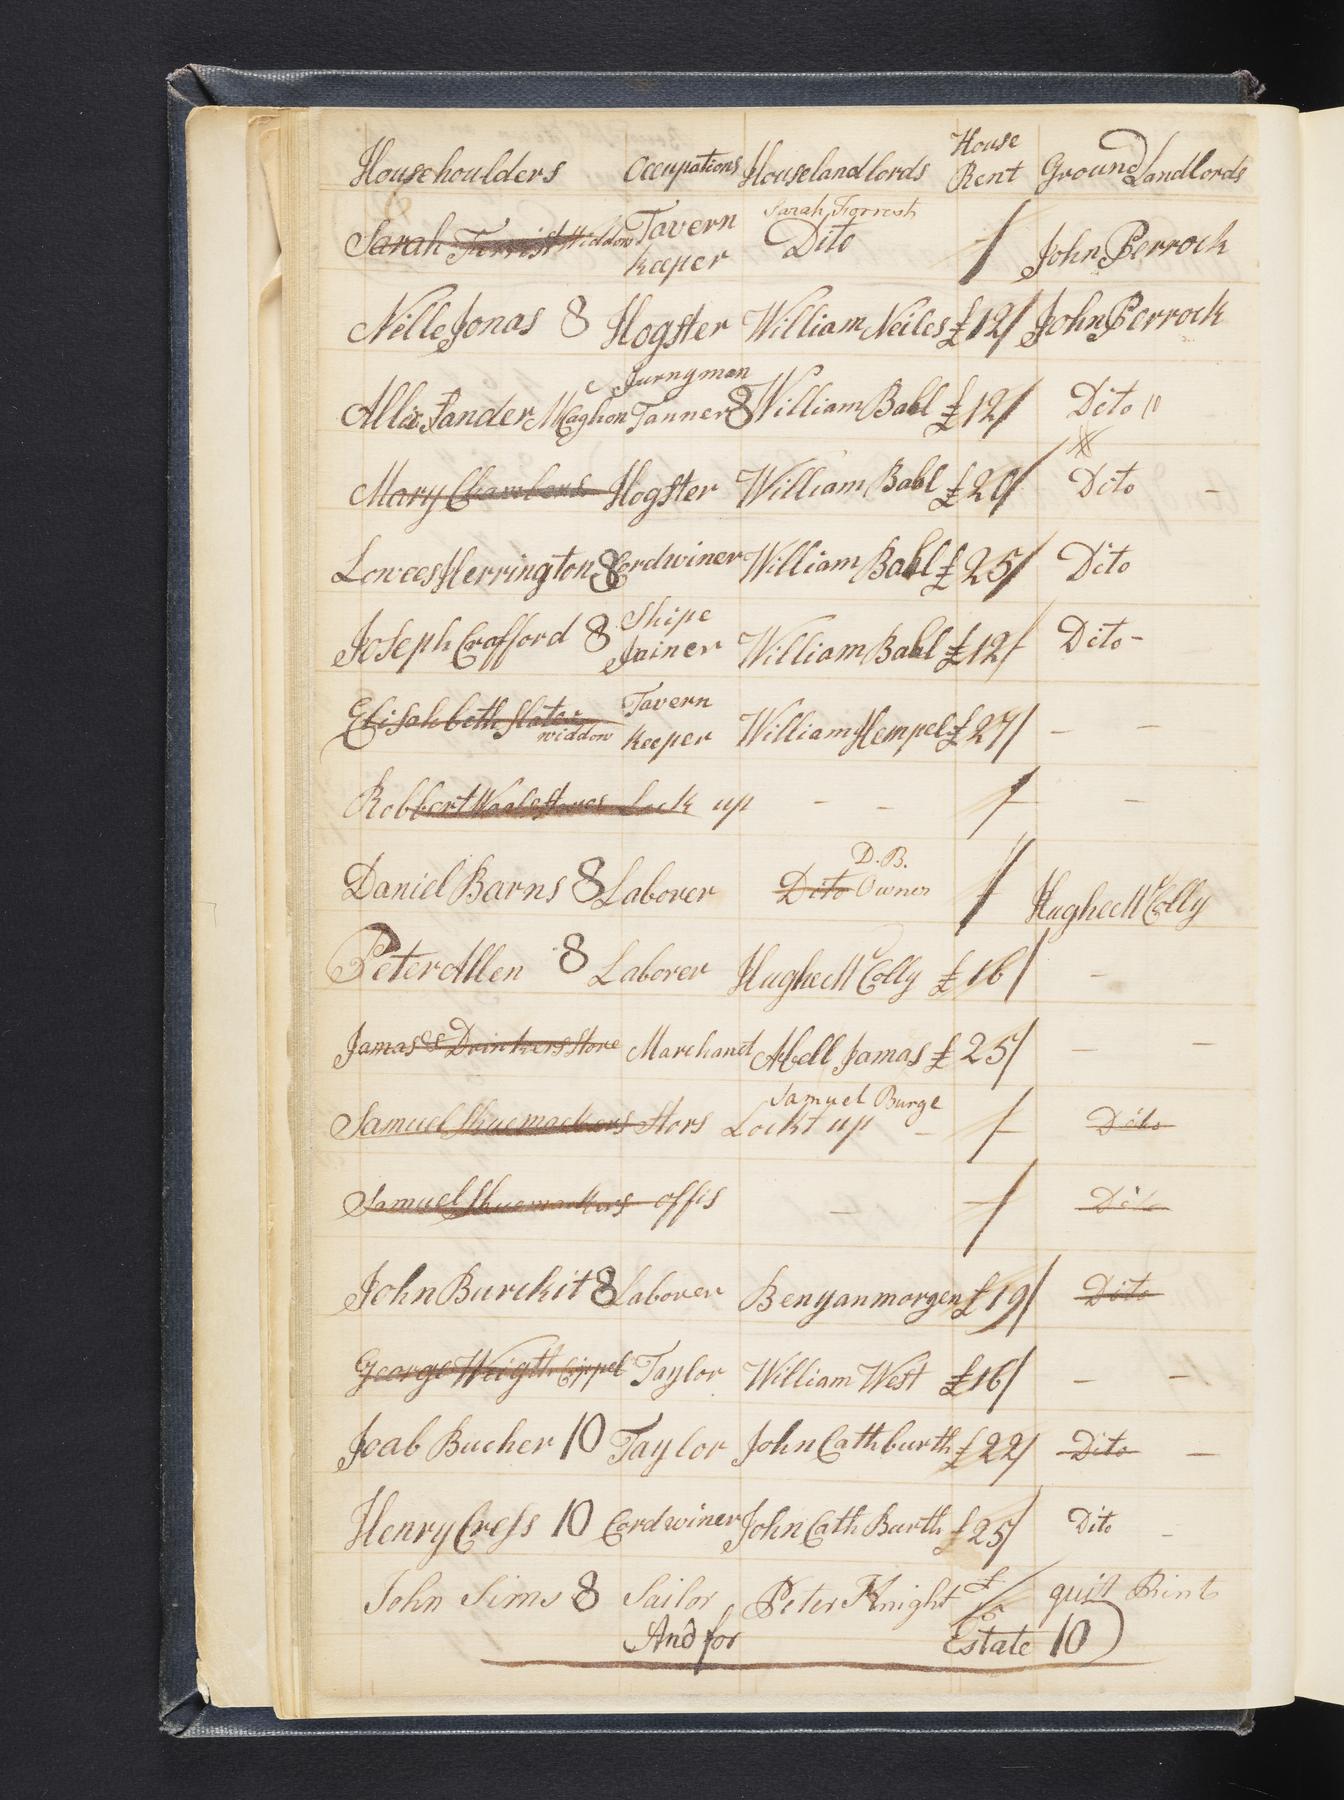 Househoulders Occupations Houselandlords House Rent Ground Landlords
Sarah Forrist Widdow Tavern keeper Sarah Forrest Dito John Perrock
Nille Jonas 8 Hogster William Neiles £12/ John Perrock
Jurnyman
Allixander McCaghon Tanner 8 William Babl £12/ Dito
Mary Chambers Hogster William Babl £20/ Dito -
Lowees Herrington 8 Cordwiner William Babl £25/ Dito
Joseph Crafford 8 Shipe Joiner William Babl £12/ Dito -
Elisabeth Slater widdow Tavern keeper William Hempel £27/ - -
Robbert Stores Lock up - - / -
D.B.
Daniel Barns 8 Laborer Dito Owner / Hughe McColly
Peter Allen 8 Laborer Hughe McColly £16/ -
Jamas & Drinkers Store Marchanet Abell Jamas £25/ - -
Samuel Burge
Samuel Shuemackers Stors Lockt up - / Dito
Samuel Shuemackers offis - / Dito
John Burckit 8 Laborer Benyan morgen £19/ Dito
George Wrigth Taylor William West £16/ - -
Joab Bucher 10 Taylor John Cathburth £22/ Dito -
Henry Cress 10 Cordwiner John Cath Burth £25/ Dito -
John Sims 8 Sailor Peter Knight £ 15 quit Rint
And for Estate 10